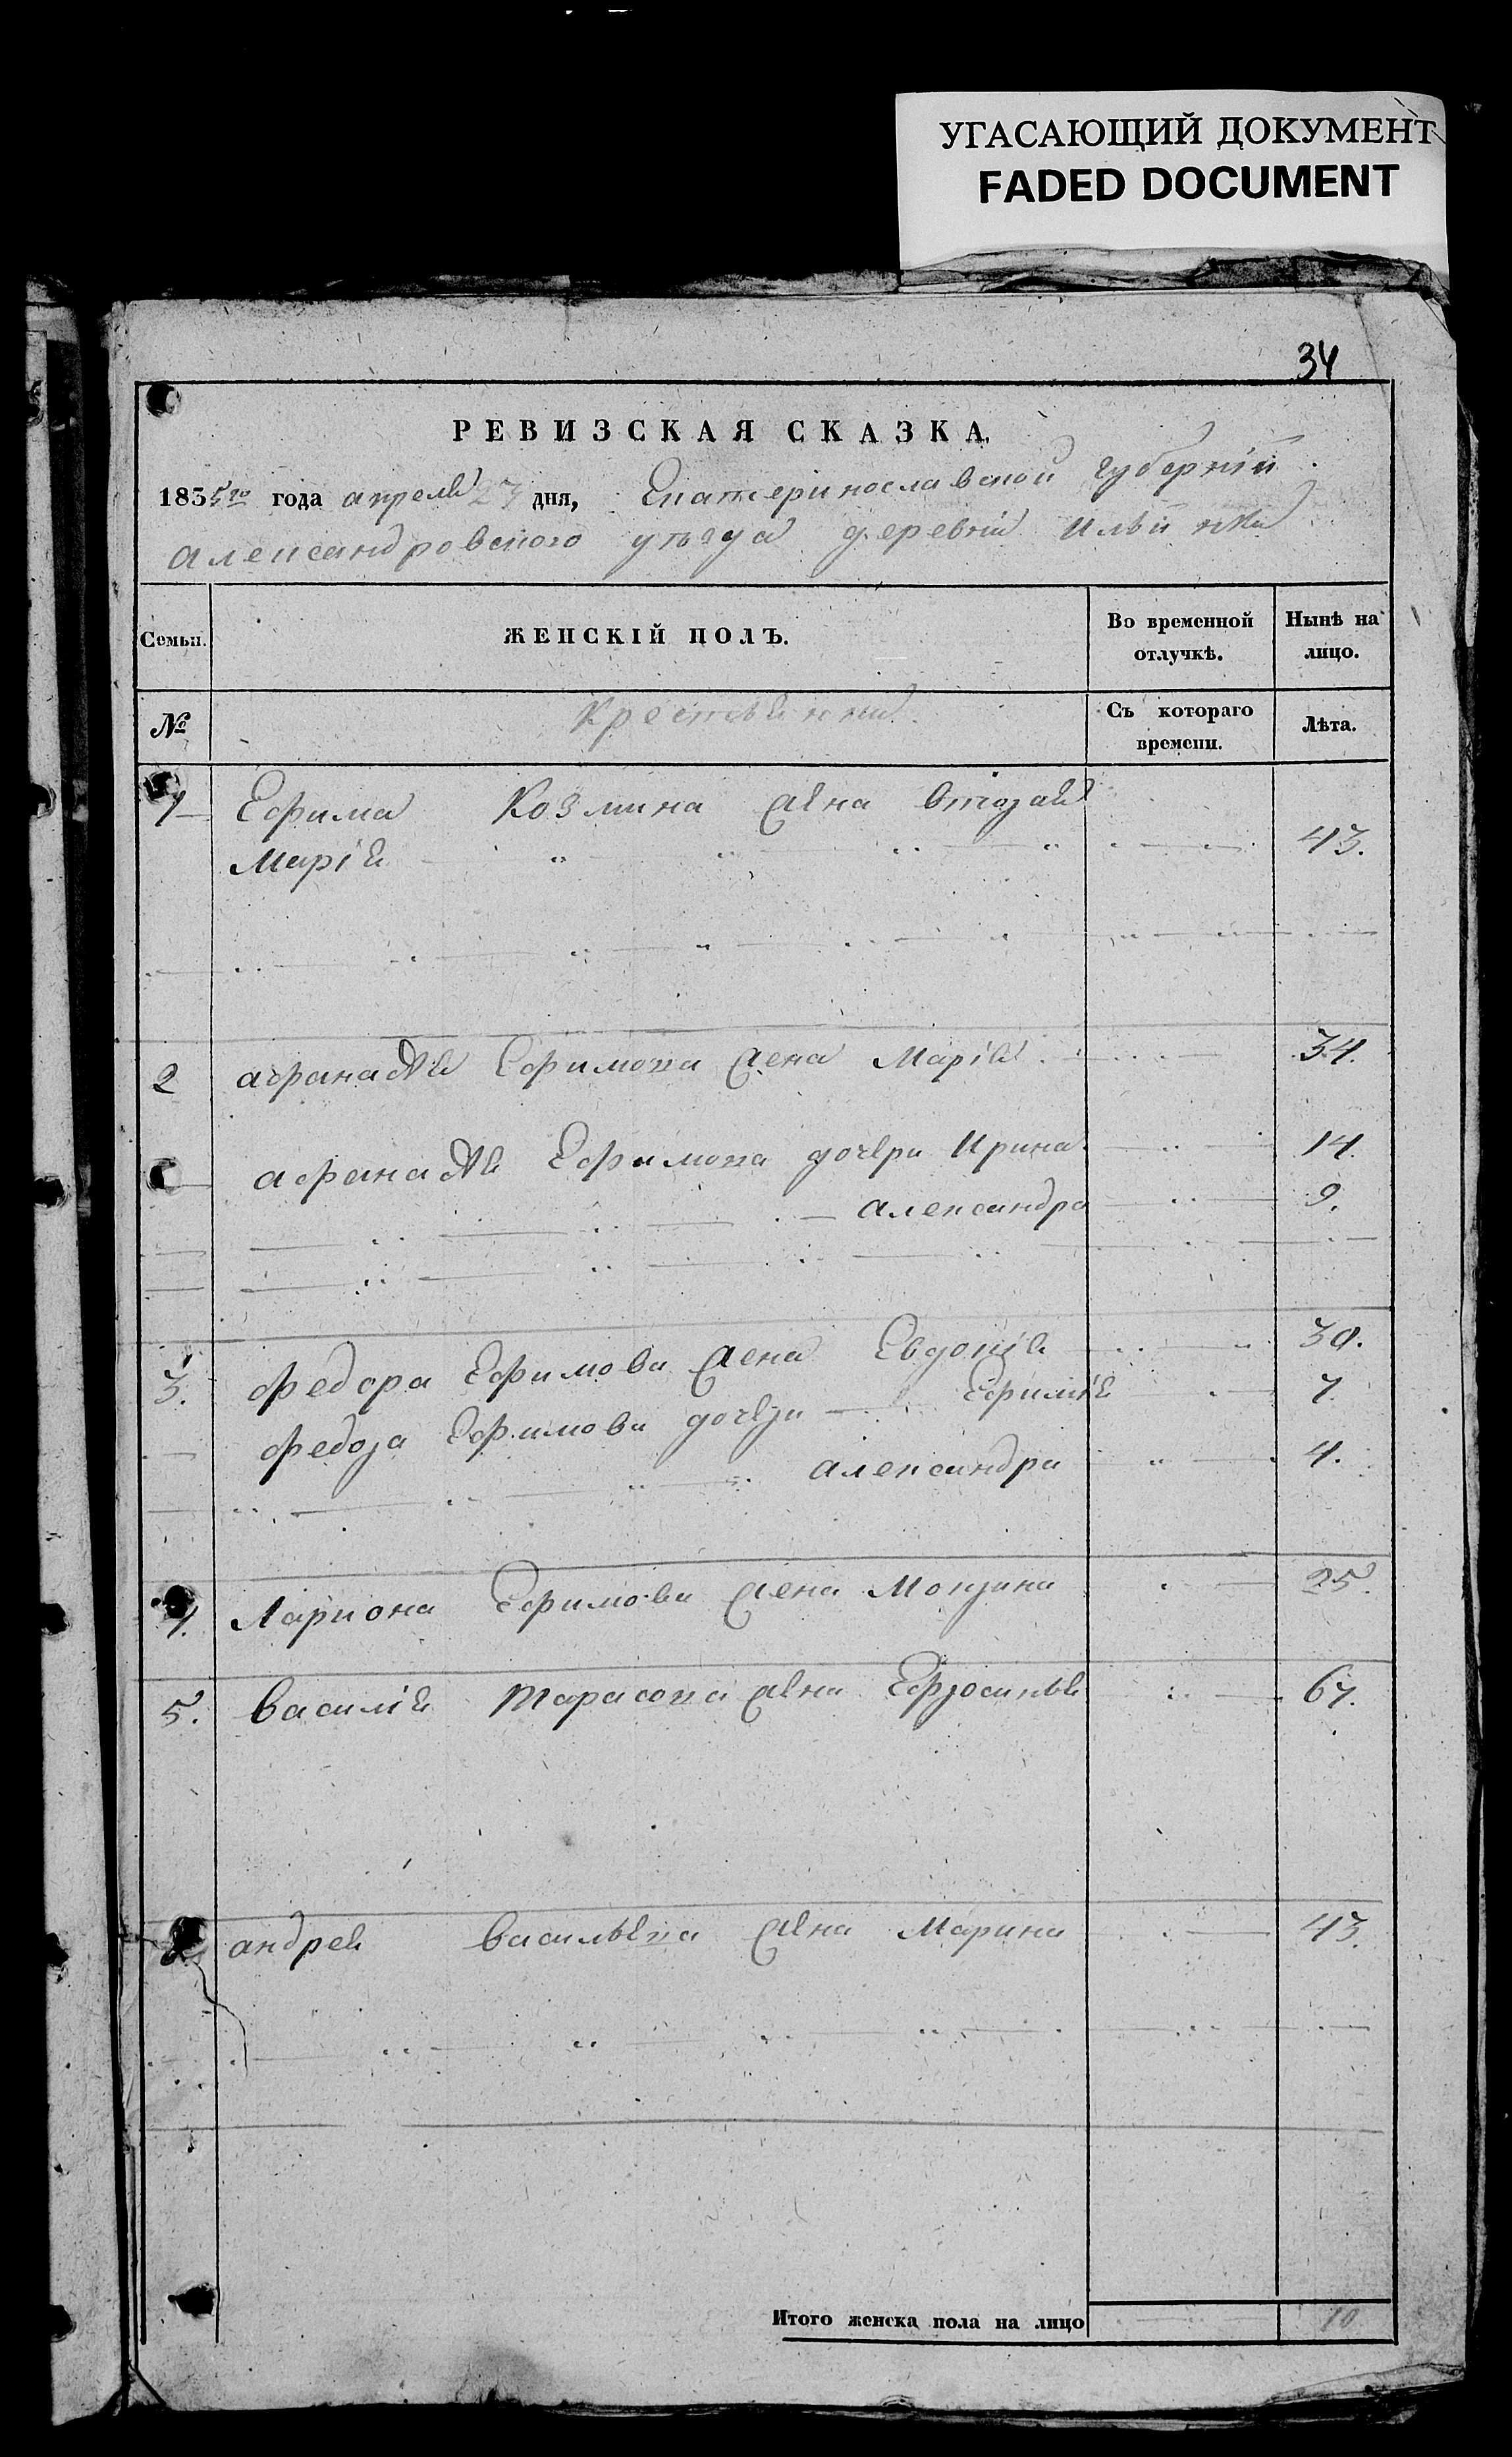 УГАСАЮЩИЙ ДОКУМЕНТ
FADED DOCUMENT
34
РЕВИЗСКАЯ СКАЗКА,
1835го года апреля 23 дня, Екатеринославской губерніи
александровского уѣзда деревни ильинки
Семьи. ЖЕНСКІЙ ПОЛЪ. Во временной отлучкѣ. Нынѣ на лицо.
№ Крестьянки Съ котораго времени. Лѣта.
1 Ефима Козмина жена вторая
Марія 43.
2 афанасия Ефимова жена Марія 34.
афанасия Ефимова дочери Ирина 14
александра 9.
3. Федора Ефимова жена Евдокія 30.
Федора Ефимова дочери Ефимія 7
александра 4.
4. Лариона Ефимова жена 25.
5. Василія Тарасова жена Ефросинья 67.
андрея васильева жена Марина 43.
Итого женска пола на лицо 10